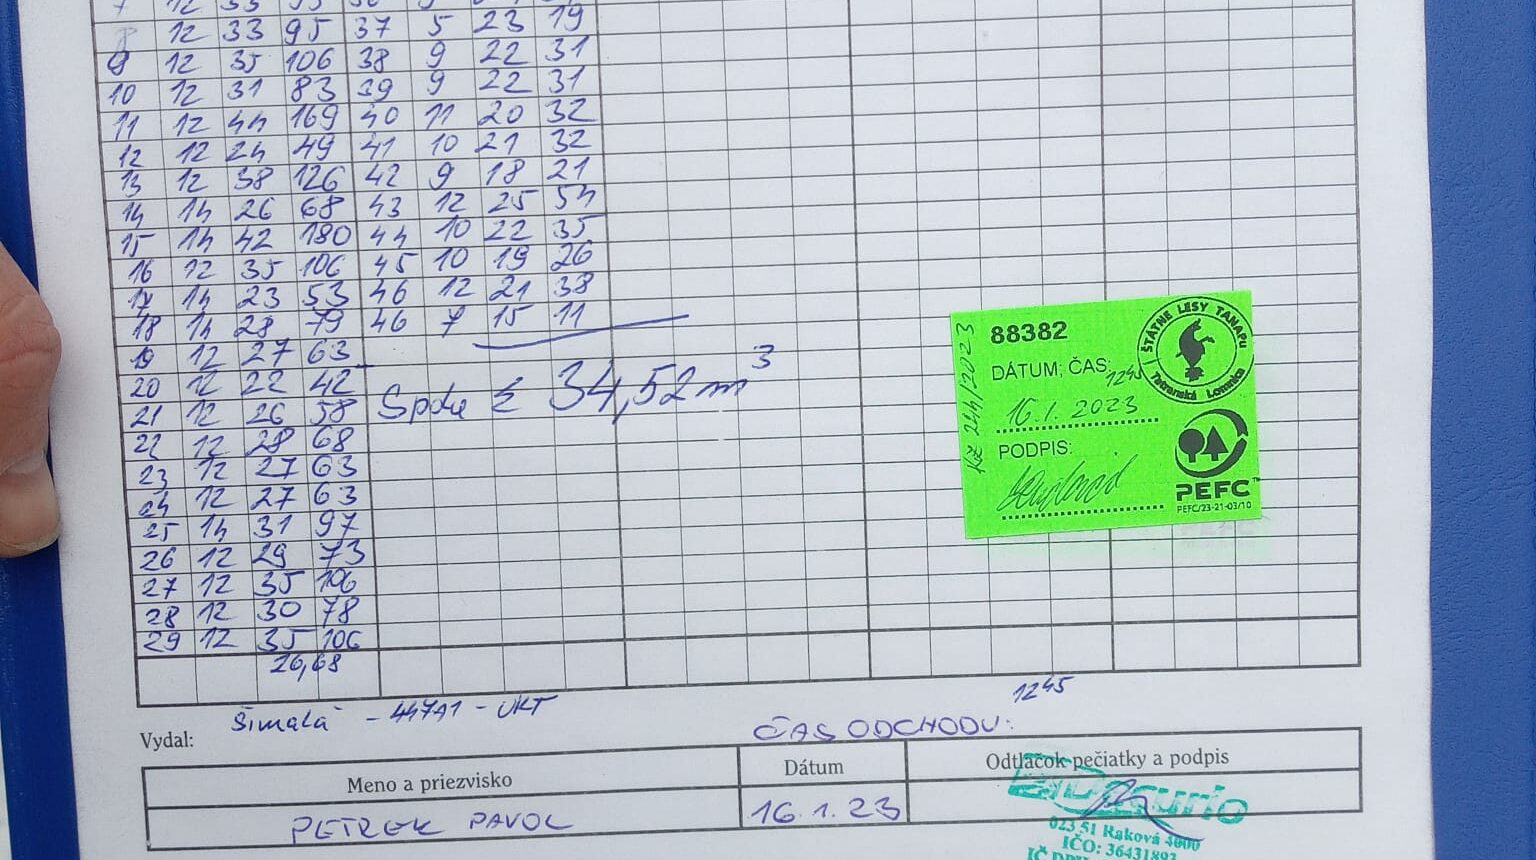 12 33 95 37 5 23 19
9 12 35 106 38 9 22 31
10 12 31 83 39 9 22 31
11 12 44 169 40 11 20 32
12 12 24 49 41 10 21 32
13 12 38 126 42 9 18 21
14 14 26 68 43 12 25 54
15 14 42 180 44 10 22 35
16 12 35 106 45 10 19 26
17 14 23 53 46 12 21 38
18 14 28 79 46 7 15 11
19 12 27 63
20 12 22 42
21 12 26 58
22 12 28 68
23 12 27 63
24 12 27 63
25 14 31 97
26 12 29 73
27 12 35 106
28 12 30 78
29 12 35 106
26,68
Spolu Σ 34,52 m³
88382
DÁTUM; ČAS:
12⁴⁵
16.1.2023
PODPIS:
ŠTÁTNE LESY TANAPu
Tatranská Lomnica
PEFC™
PEFC/23-21-03/10
12⁴⁵
Vydal:
ČAS ODCHODU:
Meno a priezvisko Dátum Odtlačok pečiatky a podpis
PETREK PAVOL 16.1.23
023 51 Raková
IČO: 36431893